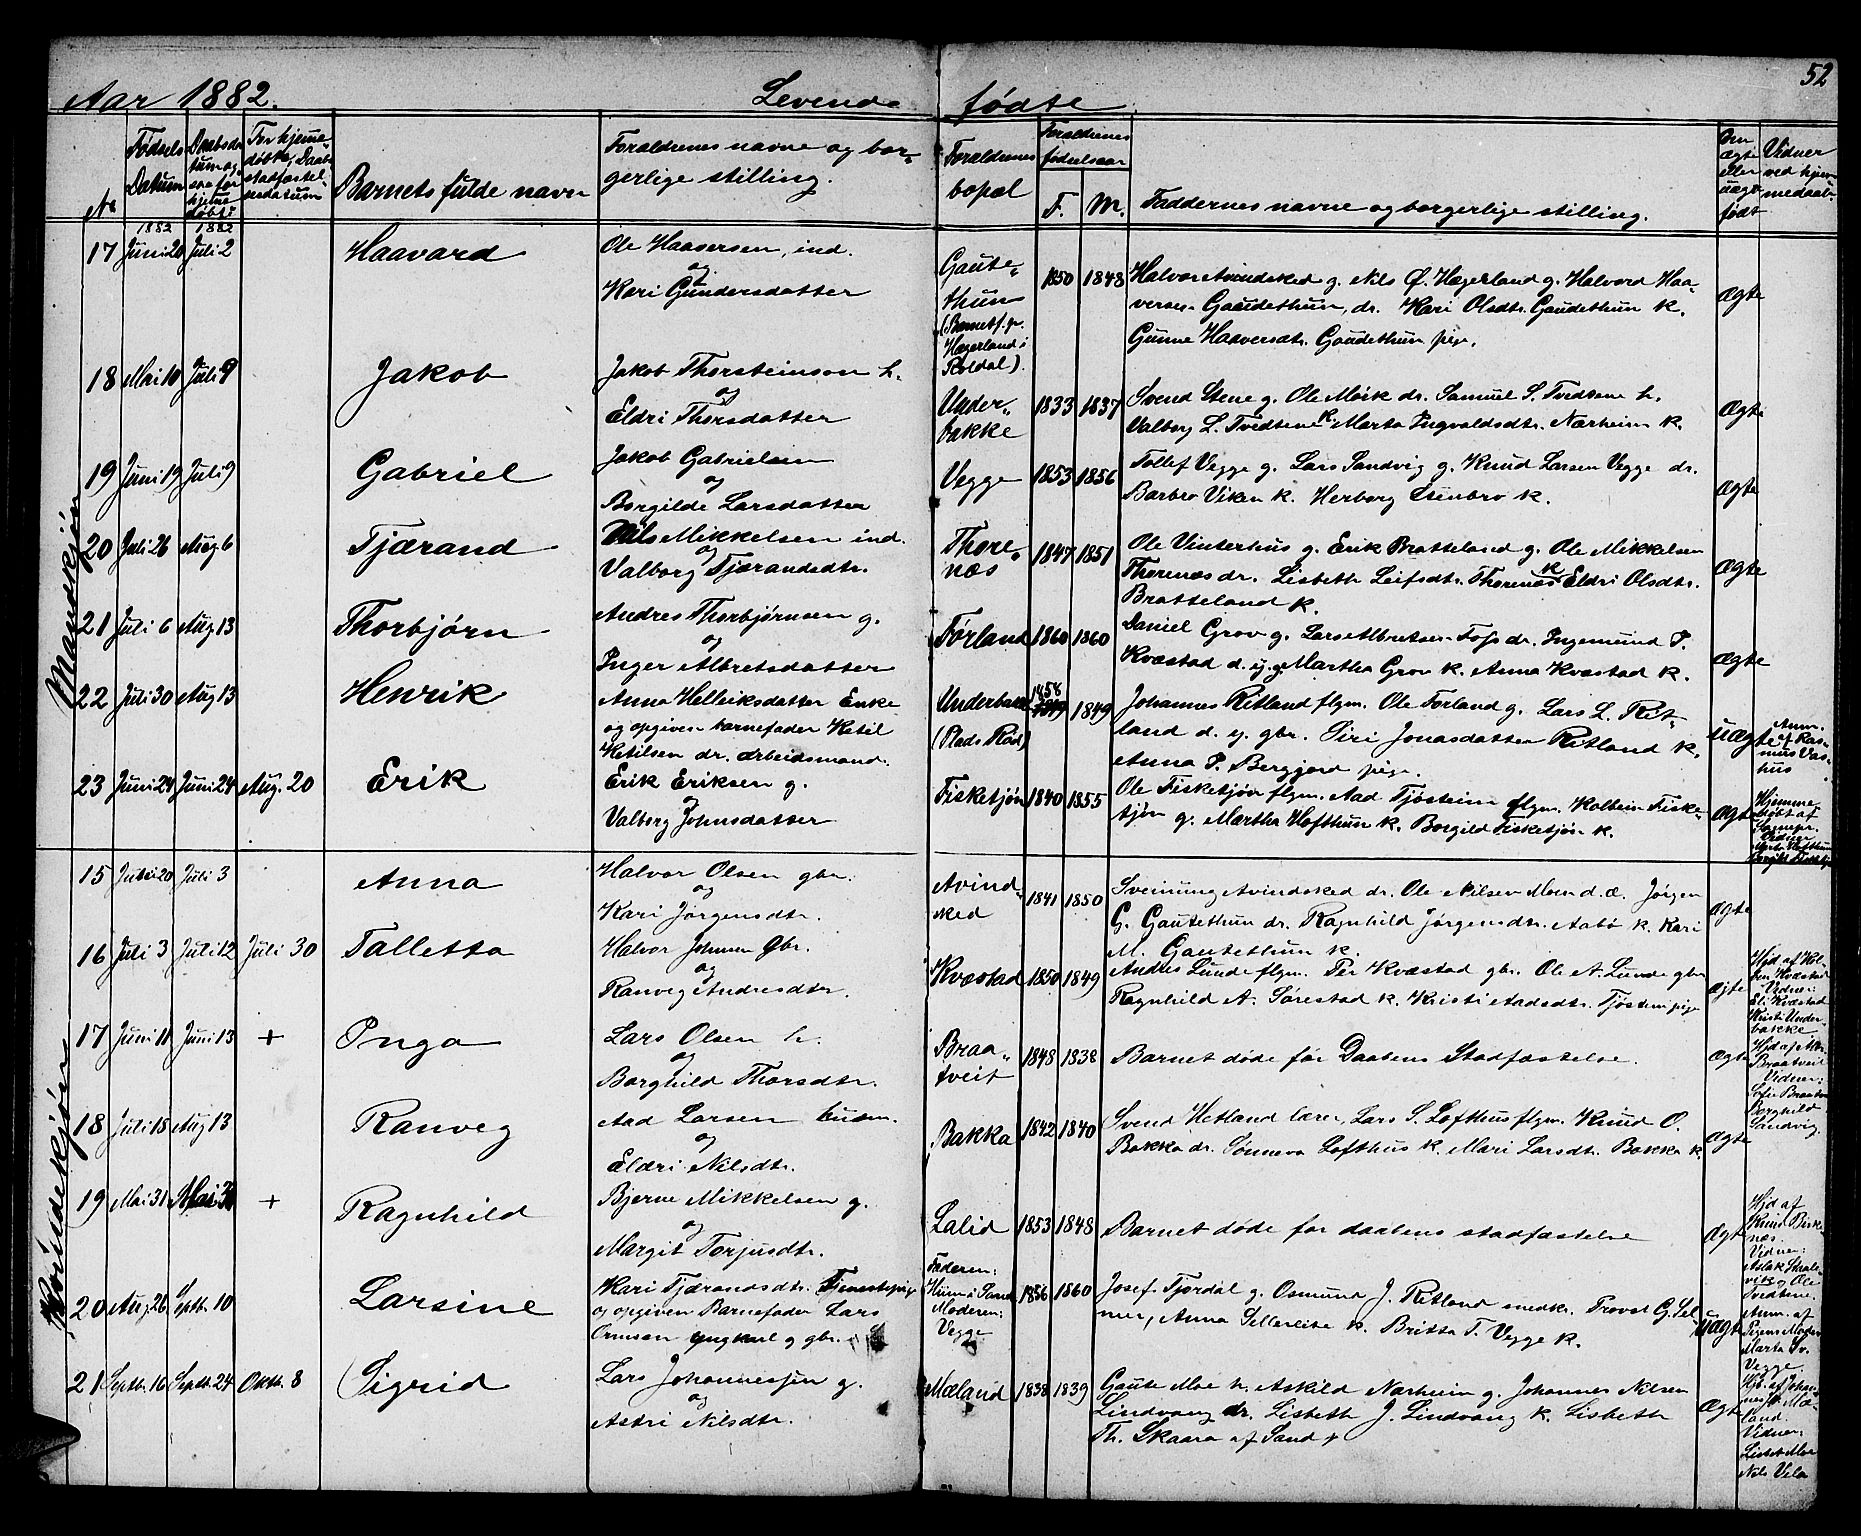 52
Aar 1882. Levende fødte
Nr
Fødsels Datum
For hjemmedøbte, Daabsstadfæstelsesdatum
Barnets fulde navn
Forældrenes navne og borgerlige stilling.
Forældrenes bopæl
Forældrenes fødselsaar
F. M.
Faddernes navne og borgerlige stilling.
Om ægte eller uægte født
Vidner ved hjemmedaab
Mandkjøn
1882 1882
17 Juni 20 Juli 2 Haavard
Ole Haaversen, ind.
og
Kari Gundersdatter
Gautethun
(Barnet f. p. Hægerland i Roldal).
1850 1848
Halvor Avindsked g. Nils Ø. Hægerland g. Halvord Haa-
versen Gaudethun, dr. Kari Olsdtr. Gaudethun k.
Gunne Haaversdtr. Gaudethun pige.
Ægte
18 Mai 10 Juli 9 Jakob
Jakob Thorsteinson h.
og
Eldri Thorsdatter
Underbakke
1833 1837
Svend Stene g. Ole Moik dr. Samuel S. Tvedtene h.
Valborg L. Tvedtene k. Marta Ingvaldsdtr. Nærheim k.
Ægte
19 Juni 19 Juli 9 Gabriel
Jakob Gabrielsen
og
Borgilde Larsdatter
Vegge
1853 1856
Tollef Vegge g. Lars Sandvig g. Knud Larsen Vegge dr.
Barbro Viken k. Herborg k.
Ægte
20 Juli 26 Aug 6 Tjærand
Nils Mikkelsen ind.
og
Valborg Tjærandsdtr.
Thorenæs
1847 1851
Ole Vinterhus g. Erik Bratteland g. Ole Mikkelsen
Thorenæs dr. Lisbeth Leifsdtr. Thorenæs k Eldri Olsdtr.
Bratteland k.
Ægte
21 Juli 6 Aug 13 Thorbjørn
Andres Thorbjørnsen g.
og
Inger Albretsdatter
Førland
1860 1860
Daniel Grov g. Lars Albretsen Foss dr. Ingemund P.
Kvæstad d. y. g. Martha Grov k. Anna Kvæstad k.
Ægte
22 Juli 30 Aug 13 Henrik
Anna Helleiksdatter Enke
og opgiven barnefader Ketil
Ketilsen dr. arbeidsmand.
Underbakke
(Plads Rød)
1858 1849
Johannes Ritland flgm. Ole Førland g. Lars L. Rit-
land d. y. gbr. Siri Jonasdatter Ritland k.
Anna P. Berggjord pige.
Uægte
Anm. af Rasmus Vashus
23 Juni 24 Juni 24 Aug. 20 Erik
Erik Eriksen g.
og
Valborg Johnsdatter
Fisketjøn
1840 1855
Ole Fisketjøn flgm. Aad Tjøstein flgm. Kolbein Fiske-
tjøn g. Martha Hofthun k. Borgild Fisketjøn k.
Ægte
Hjemmedøbt af
Vidner
Kvindekjøn
15 Juni 20 Juli 3 Anna
Halvor Olsen gbr.
og
Kari Jørgensdtr.
Avindsked
1841 1850
Sveinung Avindsked dr. Ole Nilsen Moen d. æ. Jørgen
G. Gautethun dr. Ragnhild Jørgensdtr. Aabø k. Kari
M. Gautethun k.
Ægte
16 Juli 3 Juli 12 Juli 30 Talletta
Halvor Johnsen Gbr.
og
Ranveg Andresdtr.
Kvæstad
1850 1849
Andres Lunde flgm. Per Kvæstad gbr. Ole A. Lunde gbr
Ragnhild A. Sørestad k. Kristi Aadsdtr. Tjøstein pige
Ægte
Hjd af
Kvæstad
Vidner:
Eli Kvæstad
Kristi Underbakke
17 Juni 11 Juni 13 + Inga
Lars Olsen h.
og
Borghild Thorsdtr.
Braatveit
1848 1838
Barnet døde før Daabens Stadfæstelse.
Ægte
Hjd af
Braatveit
Vidner:
Sofie Braatv
Borghild
Sandvig.
18 Juli 18 Aug 13 Ranveg
Aad Larsen husm.
og
Eldri Nilsdtr.
Bakka
1842 1840
Svend Hetland lærer, Lars S. Lofthus flgm. Knud O.
Bakka dr. Sønneva Lofthus k. Mari Larsdtr. Bakka k.
Ægte
19 Mai 31 Mai 31 + Ragnhild
Bjerne Mikkelsen g.
og
Margit Torjusdtr.
Lalid
1853 1848
Barnet døde før daabens stadfæstelse
Ægte
Hjd af
Knud Birkenæs.
Vidner:
Aslak
Ole
Tvedtene.
20 Aug 26 Septb. 10 Larsine
Kari Tjærandsdtr. Tjenestepige
og opgiven Barnefader Lars
Ormsen ungkarl g gbr.
Faderen:
Hiim i Sand
Moderen:
Vegge
1856 1860
Josef Fjordal g. Osmund J. Ritland snedk. Provst G. Sel-
mer, Anna k. Britta T. Vegge k.
Uægte
Anm. af
Pigens Moder
Marta
Vegge
21 Septb. 16 Septb. 24 Oktb. 8 Sigrid
Lars Johannessen g.
og
Astri Nilsdtr.
Mæland
1838 1839
Gaute Moe h. Askild Nærheim g. Johannes Nilsen
Lindvang dr. Lisbeth J. Lindvang k. Lisbeth
Th. Skaara af Sand
Ægte
Hjd. af Johannes
Mæland.
Vidner:
Lisbet Moe
Nils Vela